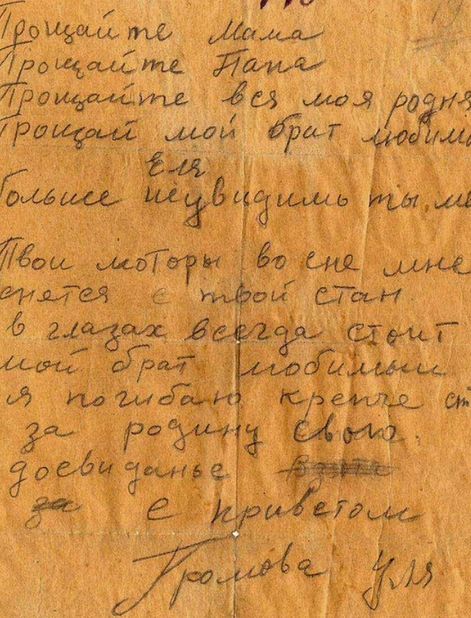 Прощайте Мама
Прощайте Папа
Прощайте вся моя родня
Прощай мой брат любимы
Еля
больше неувидишь ты ме
Твои моторы во сне мне
снятся с твой стан
в глазах всегда стоит
мой брат любимыи
я погибаю крепче ст
за родину свою.
досвиданье
за
С приветом
Громова Уля